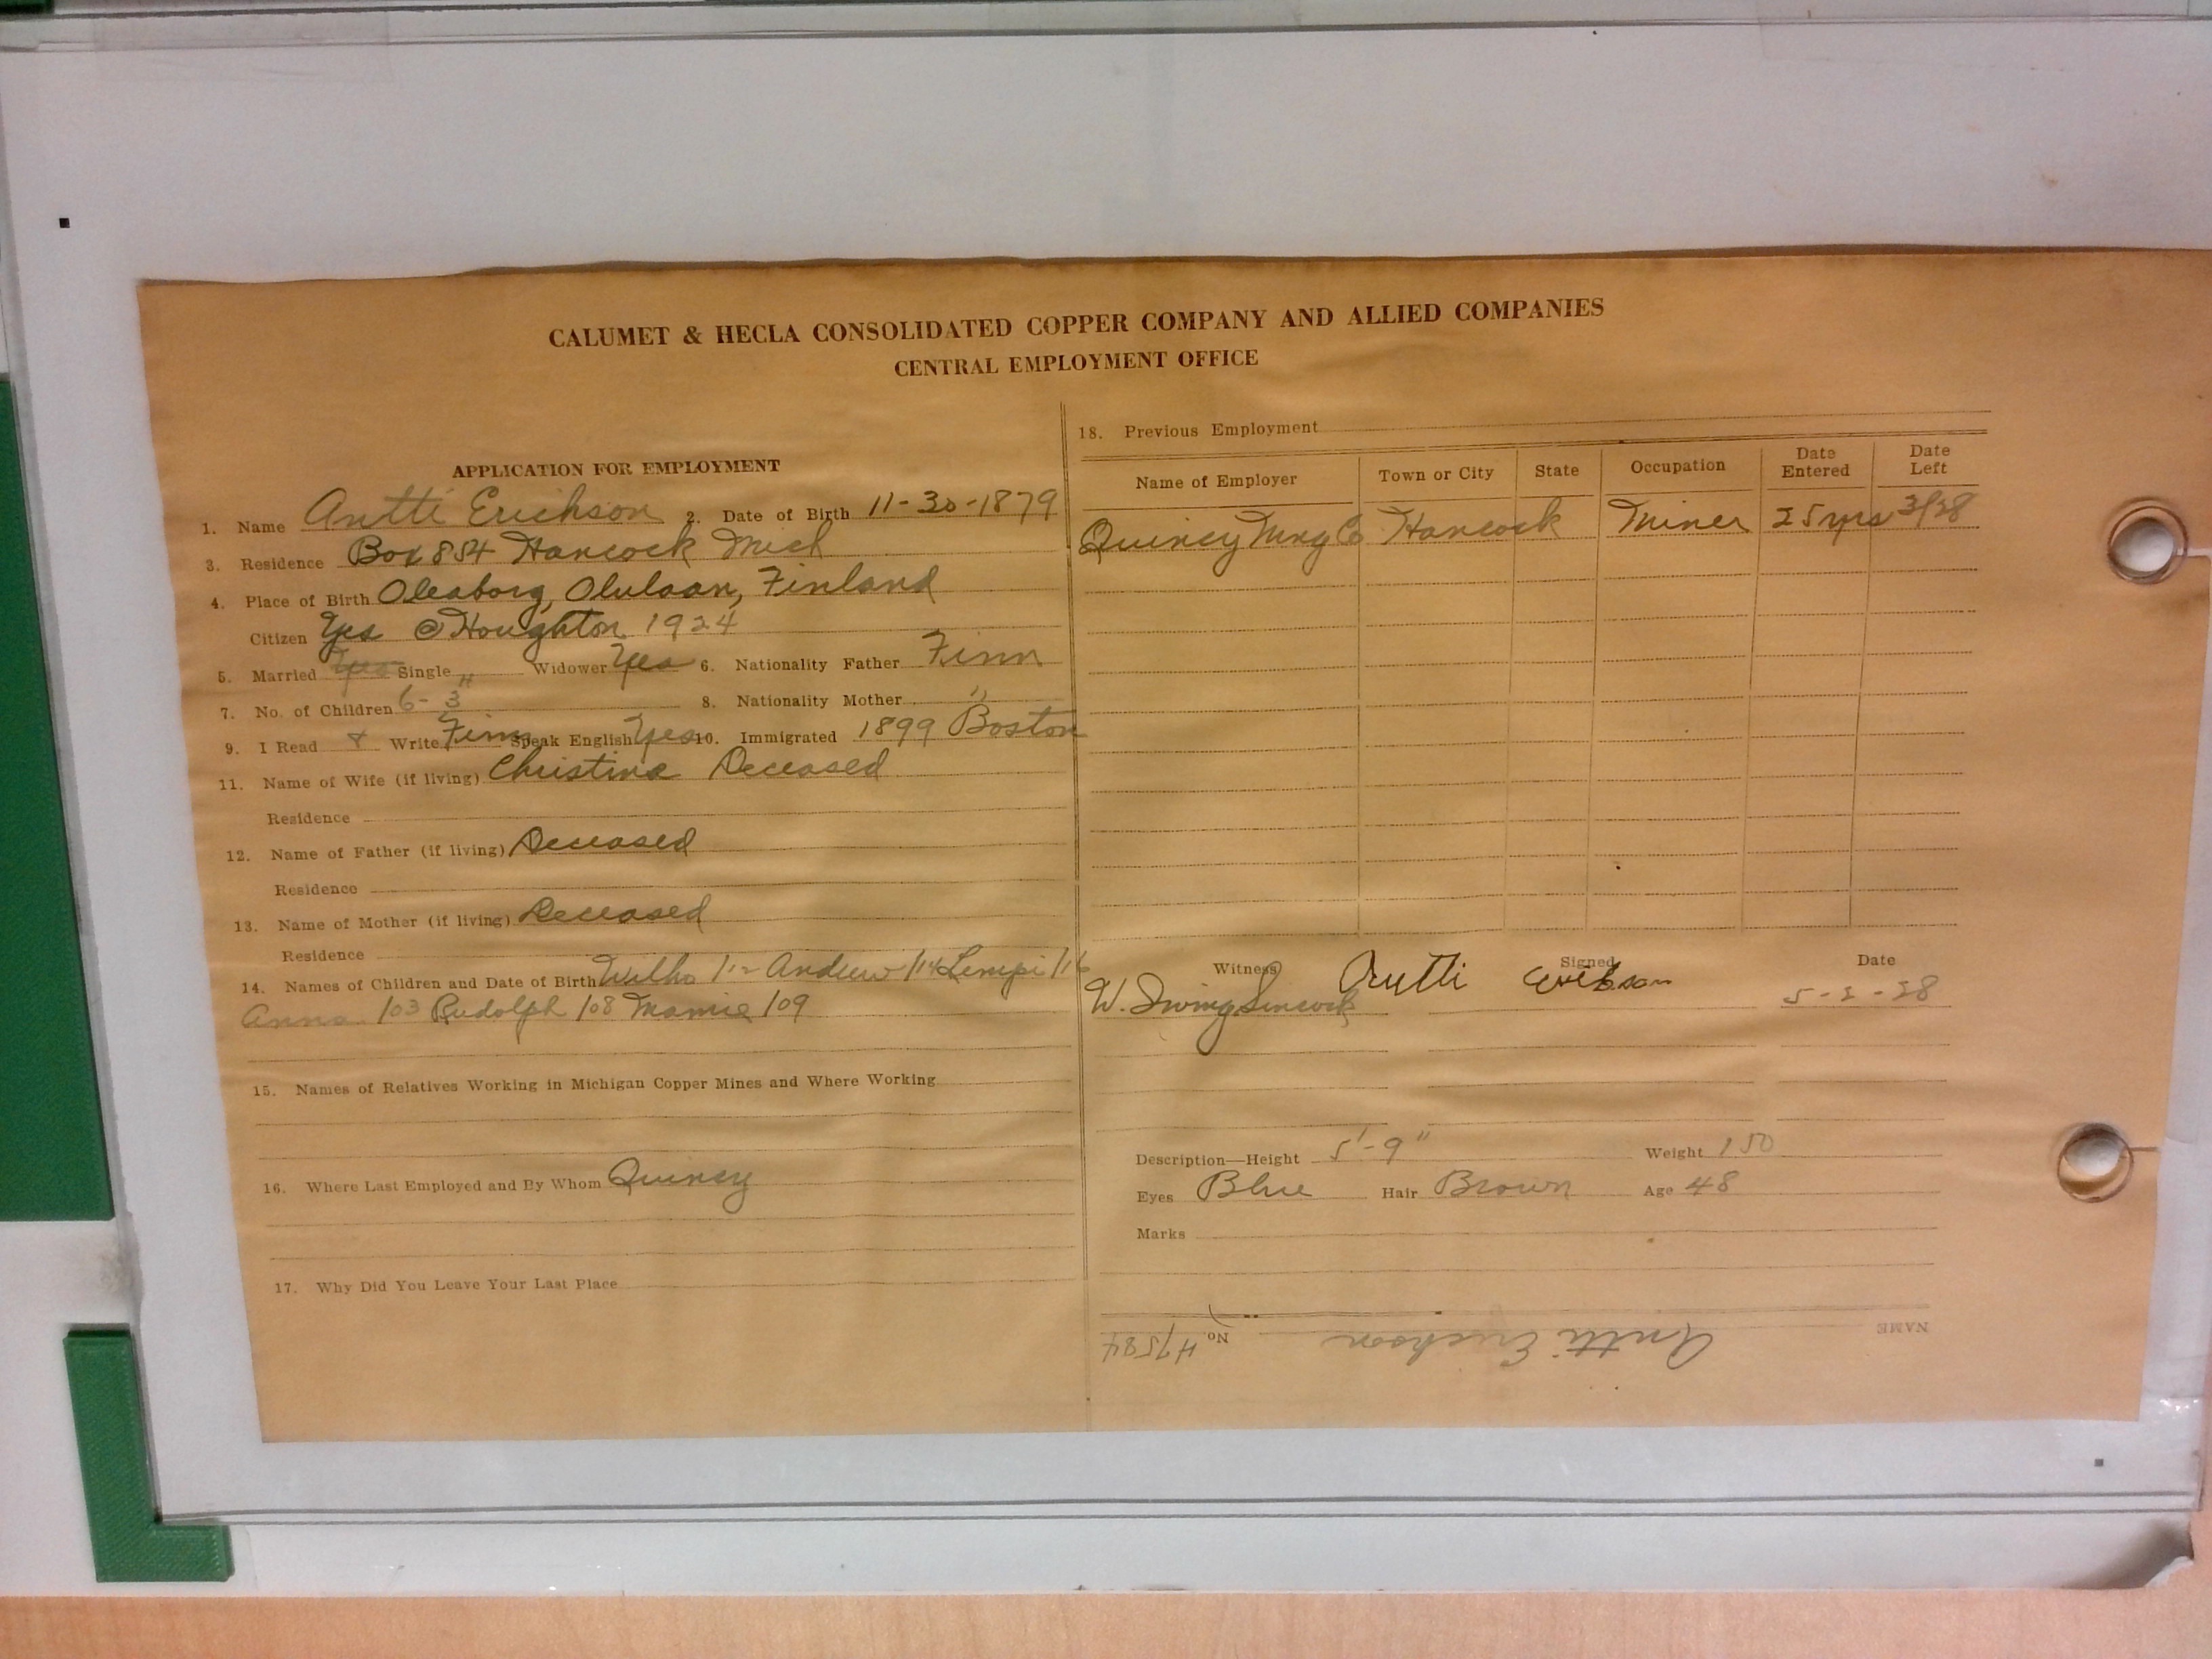 CALUMET & HECLA CONSOLIDATED COPPER COMPANY AND ALLIED COMPANIES
CENTRAL EMPLOYMENT OFFICE
APPLICATION FOR EMPLOYMENT
1. Name Antti Erickson 2. Date of Birth 11-30-1879
3. Residence Box 854 Hancock Mich
4. Place of Birth Oleaborg, Olulaan, Finland
Citizen Yes @ Houghton 1924
5. Married Yes Single Widower Yes 6. Nationality Father Finn
7. No. of Children 6-3 H 8. Nationality Mother "
9. I Read & Write Finn Speak English Yes 10. Immigrated 1899 Boston
11. Name of Wife (if living) Christina Deceased
Residence
12. Name of Father (if living) Deceased
Residence
13. Name of Mother (if living) Deceased
Residence
14. Names of Children and Date of Birth Wilho /12 Andrew /14 Lempi /16
Anna /03 Rudolph /08 Mamie /09
15. Names of Relatives Working in Michigan Copper Mines and Where Working
16. Where Last Employed and By Whom Quincy
17. Why Did You Leave Your Last Place
18. Previous Employment
Name of Employer Town or City State Occupation Date Entered Date Left
Quincy Mng Co Hancock Miner 25 yrs 3/28
Witness Signed Date
W. Irving Antti Erikson 5-2-28
Description—Height 5'-9" Weight 150
Eyes Blue Hair Brown Age 48
Marks
NAME Antti Erickson No. 47584